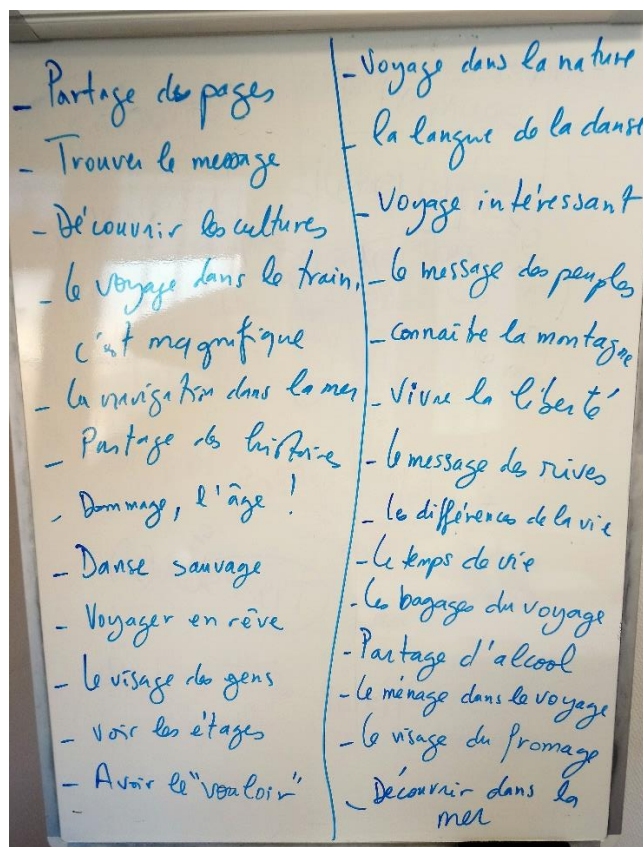 - Partage des pages
- Trouver le message
- Découvrir les cultures
- le voyage dans le train,
c'est magnifique
- la navigation dans la mer
- Partage des histoires
- Dommage, l'âge !
- Danse sauvage
- Voyager en rêve
- Le visage des gens
- voir les étages
- Avoir le "vouloir"
- Voyage dans la nature
- la langue de la danse
- Voyage intéressant
- le message des peuples
- connaître la montagne
- Vivre la liberté
- le message des rives
- les différences de la vie
- Le temps de vie
- les bagages du voyage
- Partage d'alcool
- le ménage dans le voyage
- le visage du fromage
- Découvrir dans la
mer